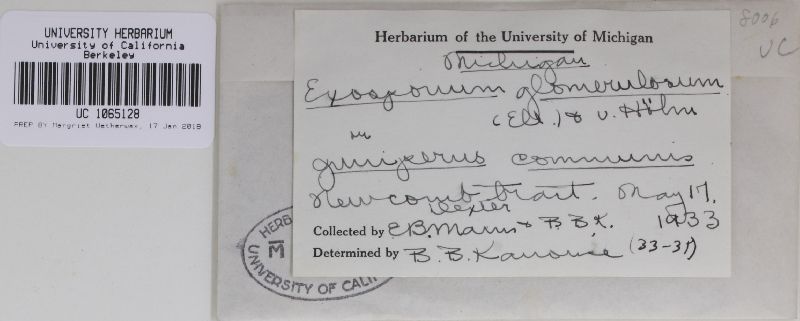 UNIVERSITY HERBARIUM
University of California
Berkeley
UC 1065128
PREP BY Margriet Wetherwax, 17 Jan 2018
8006
UC
Herbarium of the University of Michigan
Michigan
Exosporium glomerulosum
v. Höhn
on
Juniperus communis
Newcomb tract. May 17,
Dexter
Collected by E.B. Mains & B B K. 1933
Determined by B. B. Kanouse
HERB
M
UNIVERSITY OF CALIF